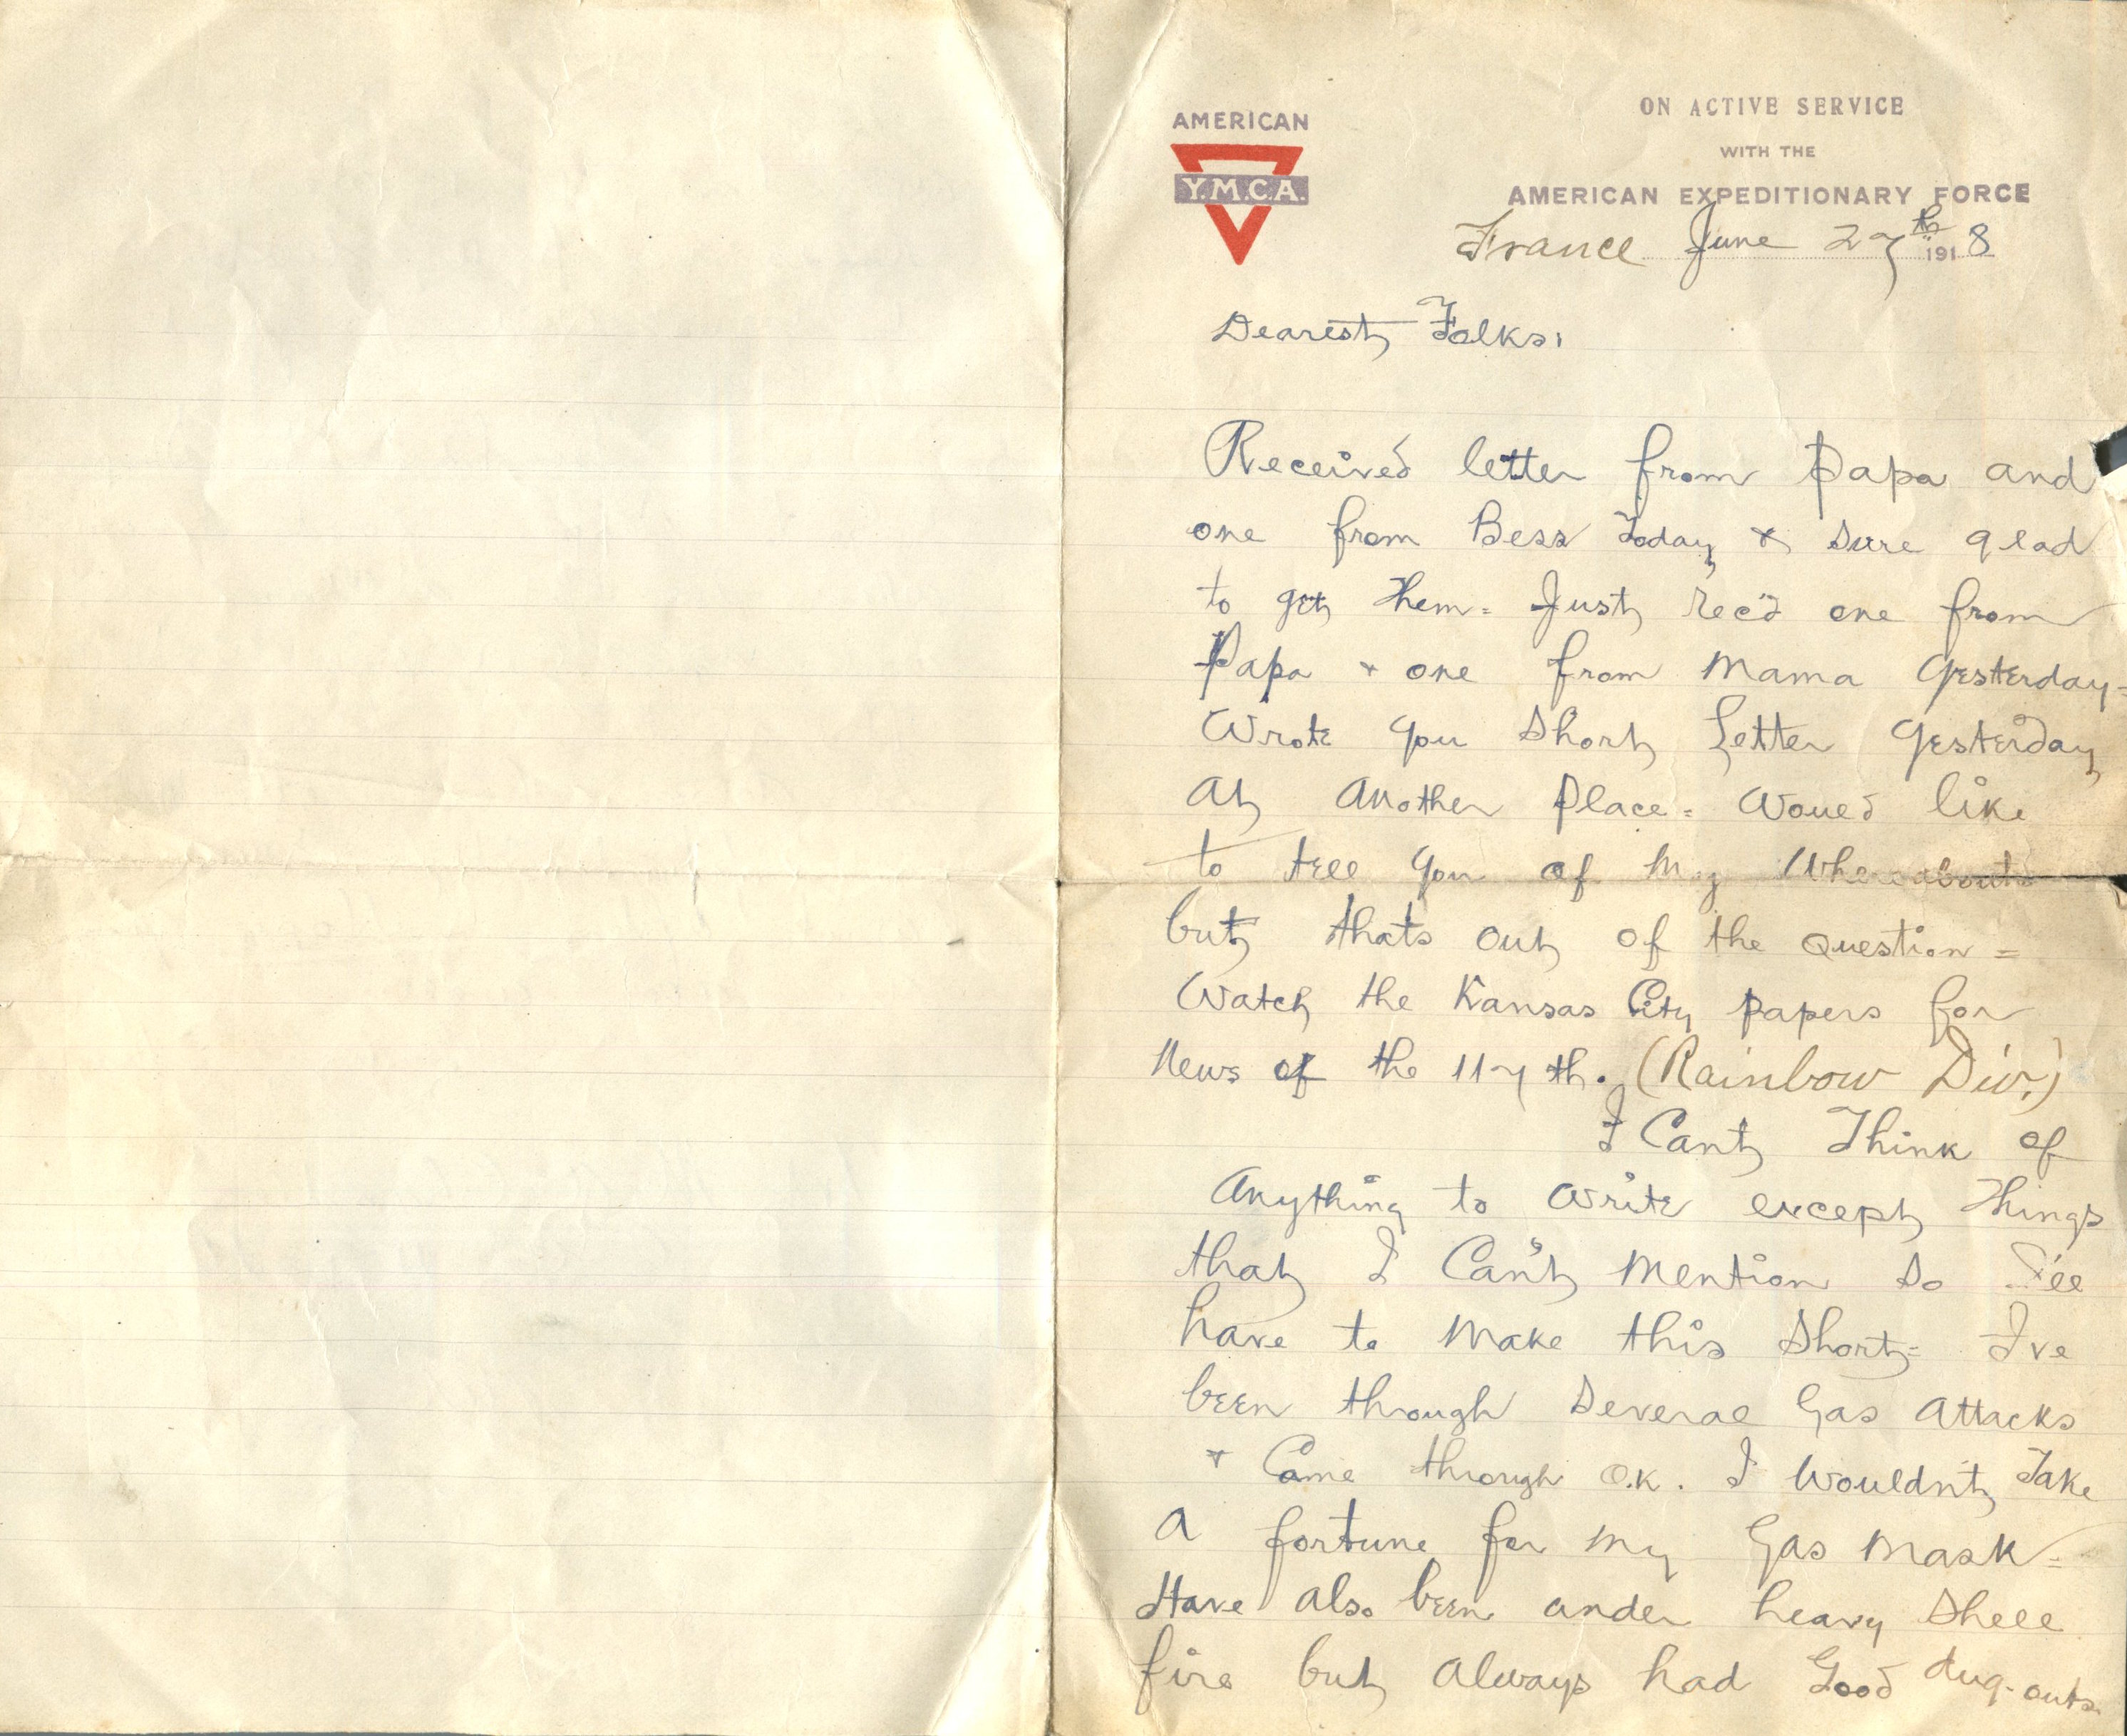 AMERICAN
Y.M.C.A.
ON ACTIVE SERVICE
WITH THE
AMERICAN EXPEDITIONARY FORCE
France June 27th 1918
Dearest Folks,
Received letter from Papa and
one from Bess Today & sure glad
to get them = Just rec'd one from
Papa & one from Mama Yesterday =
Wrote you Short Letter Yesterday
At Another Place = Would like
to tell you of my Whereabouts
but thats out of the Question =
Watch the Kansas City papers for
News of the 117th. (Rainbow Div.)
I Cant Think of
Anything to write except things
that I Can't Mention so I'll
have to Make this Short = I've
been through Several Gas Attacks
& Came through O.K. I wouldn't Take
A fortune for my Gas Mask =
Have also been under heavy Shell
fire but Always had Good dug-outs